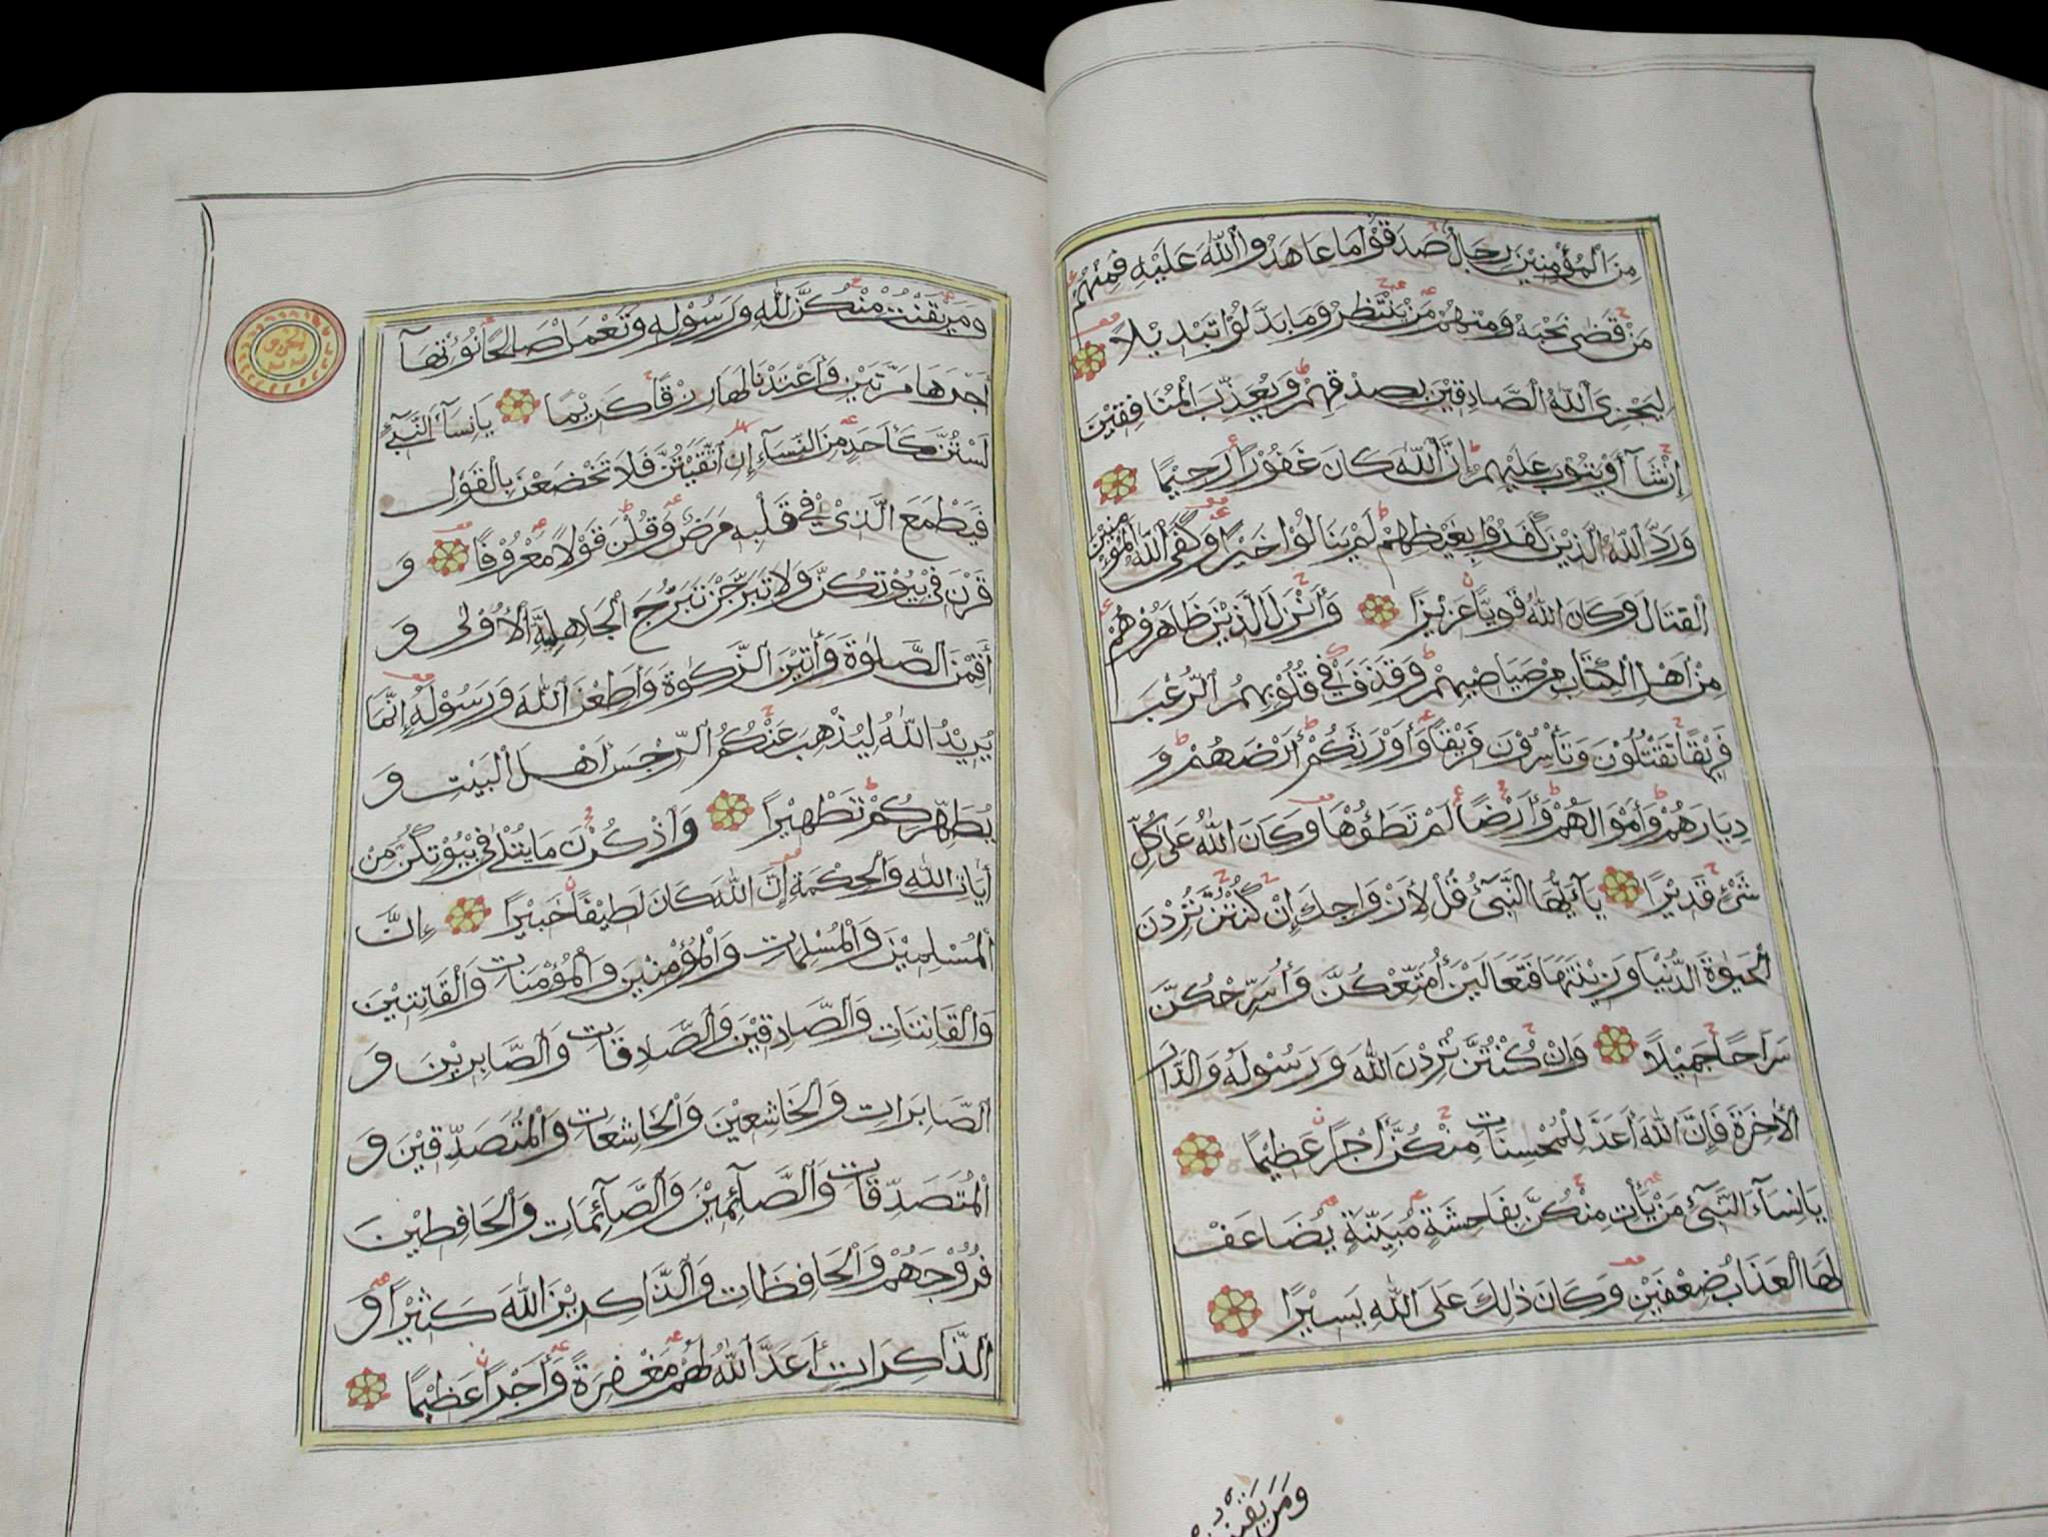 مِنَ الْمُؤْمِنِيْنَ رِجَالٌ صَدَقُوْا مَا عَاهَدُوا اللّٰهَ عَلَيْهِ فَمِنْهُمْ
مَنْ قَضٰى نَحْبَهُ وَمِنْهُمْ مَنْ يَنْتَظِرُ وَمَا بَدَّلُوْا تَبْدِيْلًا
لِيَجْزِيَ اللّٰهُ الصَّادِقِيْنَ بِصِدْقِهِمْ وَيُعَذِّبَ الْمُنَافِقِيْنَ
إِنْ شَآءَ أَوْ يَتُوْبَ عَلَيْهِمْ إِنَّ اللّٰهَ كَانَ غَفُوْرًا رَحِيْمًا
وَرَدَّ اللّٰهُ الَّذِيْنَ كَفَرُوْا بِغَيْظِهِمْ لَمْ يَنَالُوْا خَيْرًا وَكَفَى اللّٰهُ الْمُؤْمِنِيْنَ
الْقِتَالَ وَكَانَ اللّٰهُ قَوِيًّا عَزِيْزًا وَأَنْزَلَ الَّذِيْنَ ظَاهَرُوْهُمْ
مِنْ أَهْلِ الْكِتَابِ مِنْ صَيَاصِيْهِمْ وَقَذَفَ فِيْ قُلُوْبِهِمُ الرُّعْبَ
فَرِيْقًا تَقْتُلُوْنَ وَتَأْسِرُوْنَ فَرِيْقًا وَأَوْرَثَكُمْ أَرْضَهُمْ وَ
دِيَارَهُمْ وَأَمْوَالَهُمْ وَأَرْضًا لَمْ تَطَؤُهَا وَكَانَ اللّٰهُ عَلٰى كُلِّ
شَيْءٍ قَدِيْرًا يَآ أَيُّهَا النَّبِيُّ قُلْ لِأَزْوَاجِكَ إِنْ كُنْتُنَّ تُرِدْنَ
الْحَيٰوةَ الدُّنْيَا وَزِيْنَتَهَا فَتَعَالَيْنَ أُمَتِّعْكُنَّ وَأُسَرِّحْكُنَّ
سَرَاحًا جَمِيْلًا وَإِنْ كُنْتُنَّ تُرِدْنَ اللّٰهَ وَرَسُوْلَهُ وَالدَّارَ
الْأٰخِرَةَ فَإِنَّ اللّٰهَ أَعَدَّ لِلْمُحْسِنَاتِ مِنْكُنَّ أَجْرًا عَظِيْمًا
يَا نِسَآءَ النَّبِيِّ مَنْ يَأْتِ مِنْكُنَّ بِفَاحِشَةٍ مُبَيِّنَةٍ يُضَاعَفْ
لَهَا الْعَذَابُ ضِعْفَيْنِ وَكَانَ ذٰلِكَ عَلَى اللّٰهِ يَسِيْرًا
وَمَنْ يَقْنُتْ
وَمَنْ يَقْنُتْ مِنْكُنَّ لِلّٰهِ وَرَسُوْلِهِ وَتَعْمَلْ صَالِحًا نُؤْتِهَآ
أَجْرَهَا مَرَّتَيْنِ وَأَعْتَدْنَا لَهَا رِزْقًا كَرِيْمًا يَا نِسَآءَ النَّبِيِّ
لَسْتُنَّ كَأَحَدٍ مِنَ النِّسَآءِ إِنِ اتَّقَيْتُنَّ فَلَا تَخْضَعْنَ بِالْقَوْلِ
فَيَطْمَعَ الَّذِيْ فِيْ قَلْبِهِ مَرَضٌ وَقُلْنَ قَوْلًا مَعْرُوْفًا وَ
قَرْنَ فِيْ بُيُوْتِكُنَّ وَلَا تَبَرَّجْنَ تَبَرُّجَ الْجَاهِلِيَّةِ الْأُوْلٰى وَ
أَقِمْنَ الصَّلٰوةَ وَأٰتِيْنَ الزَّكٰوةَ وَأَطِعْنَ اللّٰهَ وَرَسُوْلَهُ إِنَّمَا
يُرِيْدُ اللّٰهُ لِيُذْهِبَ عَنْكُمُ الرِّجْسَ أَهْلَ الْبَيْتِ وَ
يُطَهِّرَكُمْ تَطْهِيْرًا وَاذْكُرْنَ مَا يُتْلٰى فِيْ بُيُوْتِكُنَّ مِنْ
أٰيَاتِ اللّٰهِ وَالْحِكْمَةِ إِنَّ اللّٰهَ كَانَ لَطِيْفًا خَبِيْرًا إِنَّ
الْمُسْلِمِيْنَ وَالْمُسْلِمَاتِ وَالْمُؤْمِنِيْنَ وَالْمُؤْمِنَاتِ وَالْقَانِتِيْنَ
وَالْقَانِتَاتِ وَالصَّادِقِيْنَ وَالصَّادِقَاتِ وَالصَّابِرِيْنَ وَ
الصَّابِرَاتِ وَالْخَاشِعِيْنَ وَالْخَاشِعَاتِ وَالْمُتَصَدِّقِيْنَ وَ
الْمُتَصَدِّقَاتِ وَالصَّآئِمِيْنَ وَالصَّآئِمَاتِ وَالْحَافِظِيْنَ
فُرُوْجَهُمْ وَالْحَافِظَاتِ وَالذَّاكِرِيْنَ اللّٰهَ كَثِيْرًا وَ
الذَّاكِرَاتِ أَعَدَّ اللّٰهُ لَهُمْ مَغْفِرَةً وَأَجْرًا عَظِيْمًا